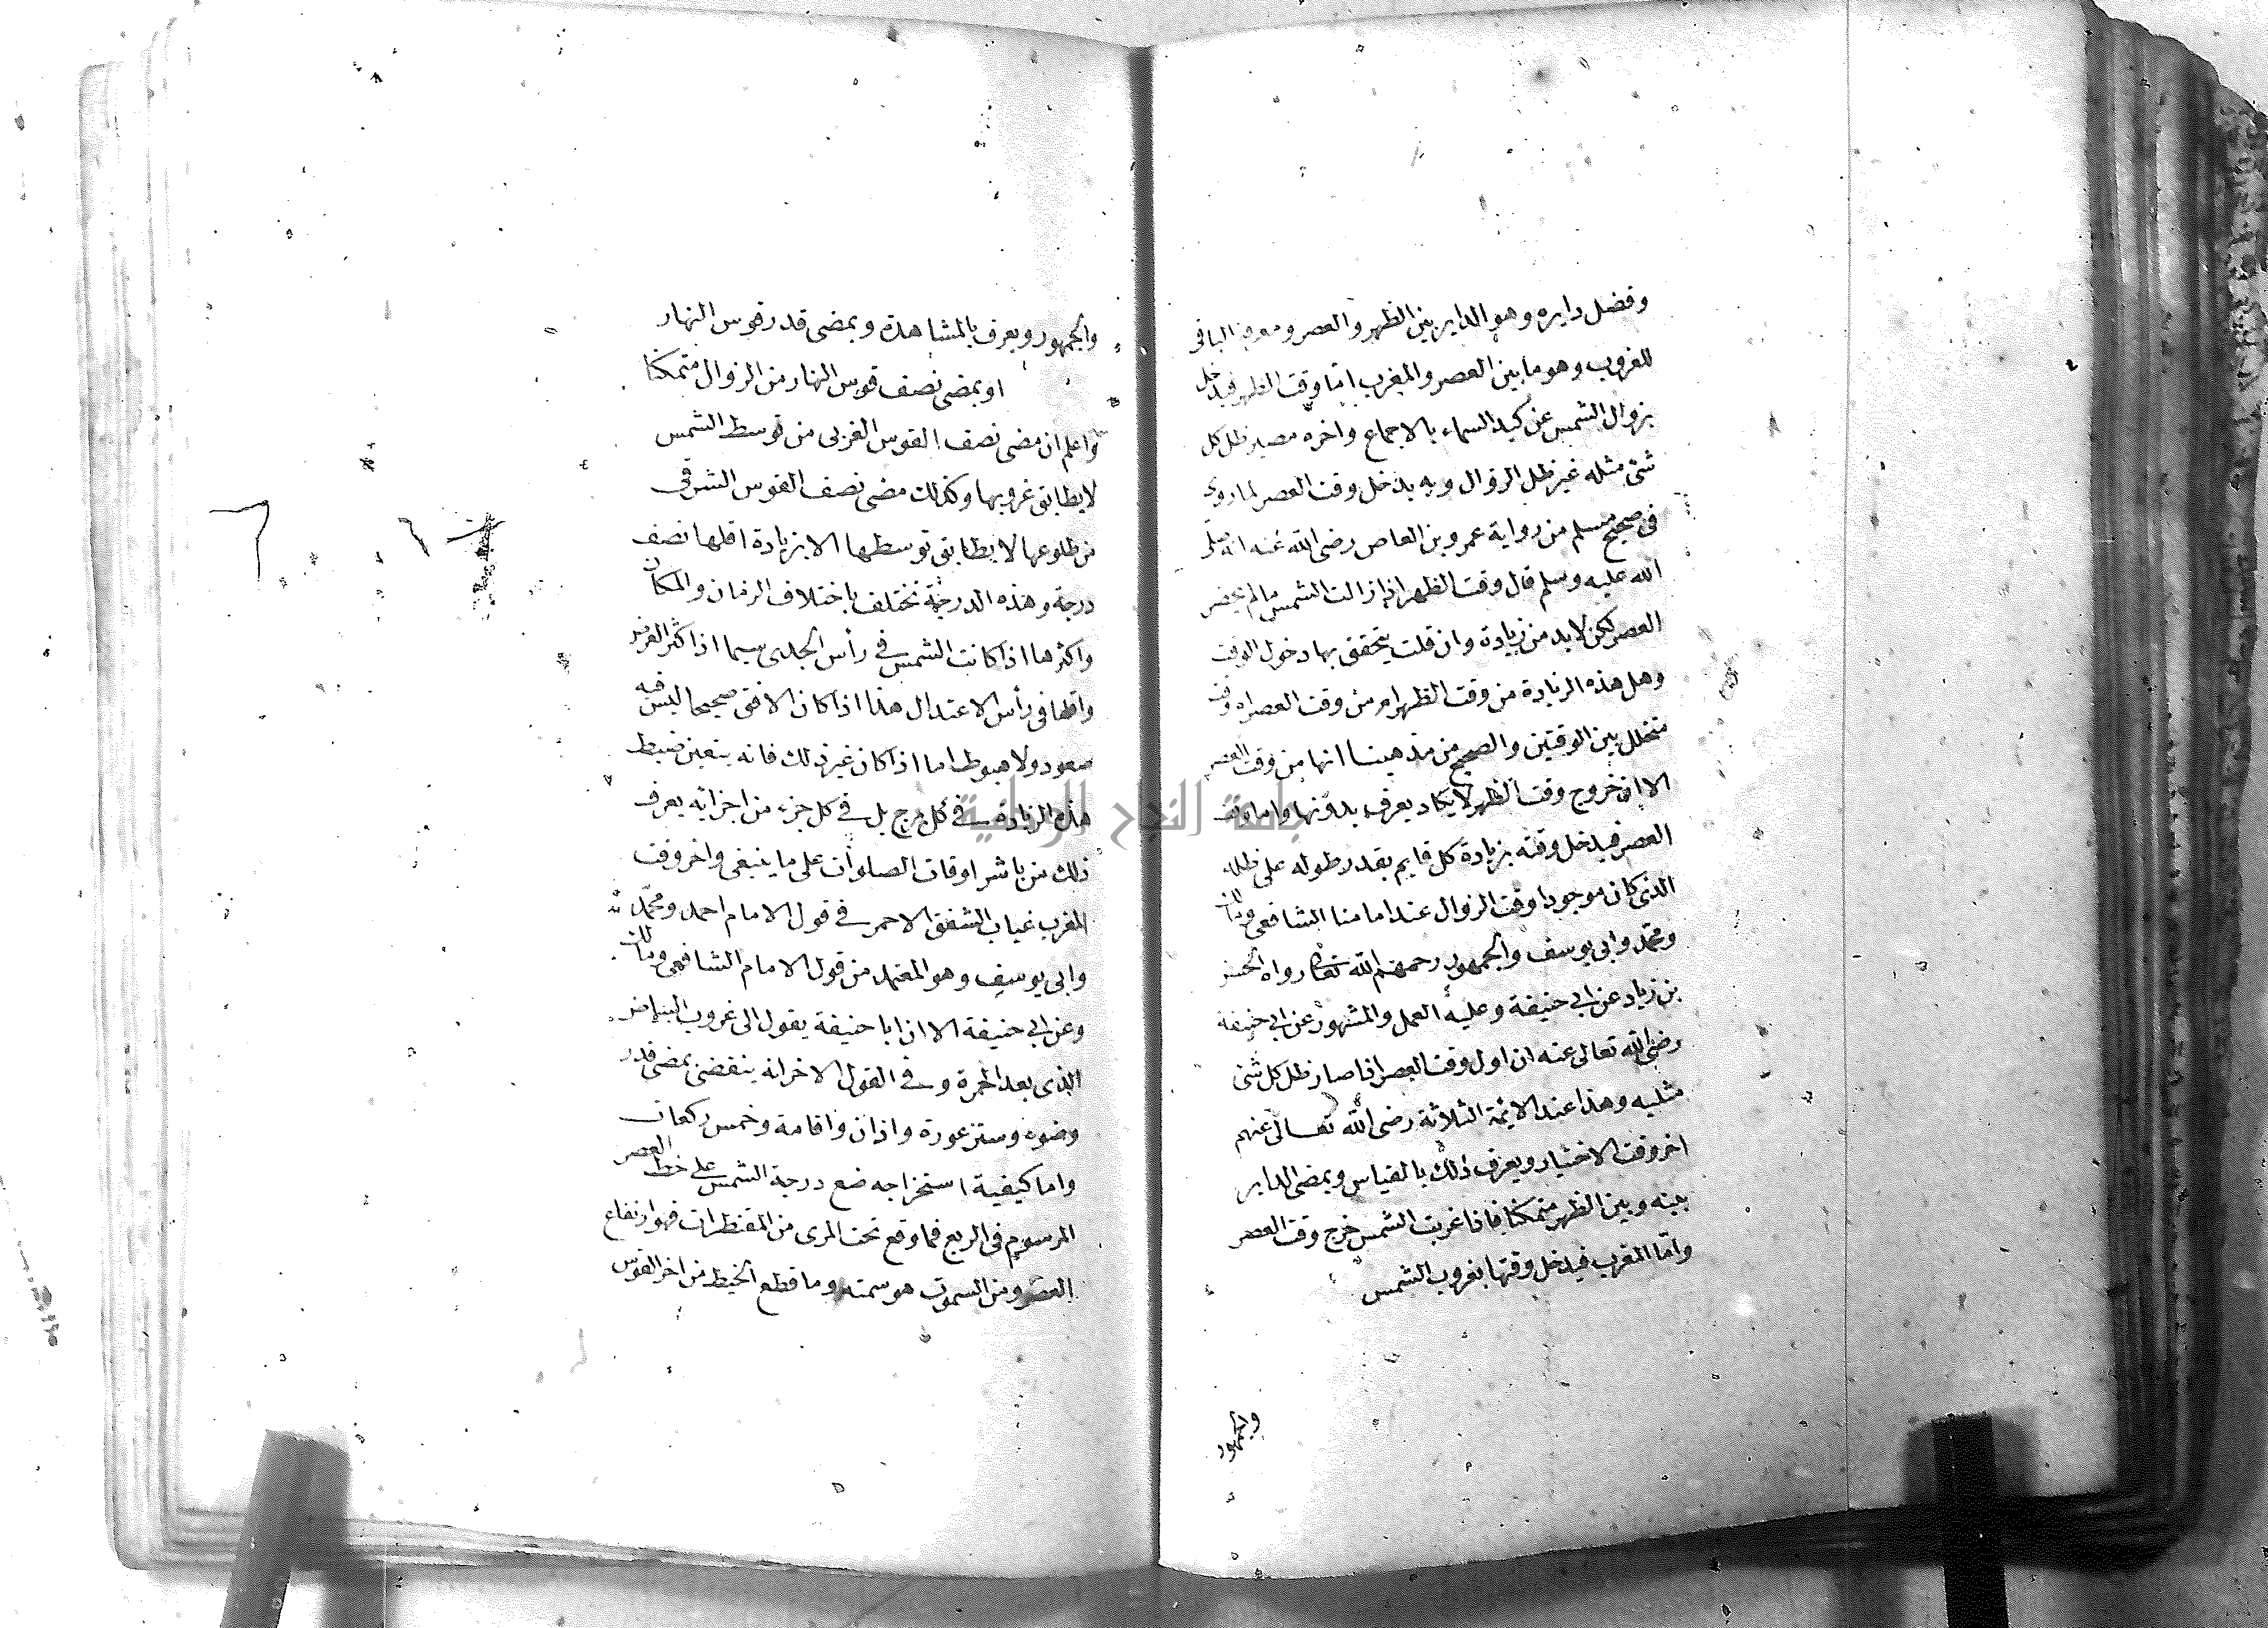 وفضل دايره وهو الداير بين الظهر والعصر ومعرفة الباقى
للغروب وهو ما بين العصر والمغرب اما وقت الظهر فيدخل
بزوال الشمس عن كبد السماء بالاجماع واخره مصير ظل كل
شئ مثله غير ظل الزوال وبه يدخل وقت العصر لما روى
فى صحيح مسلم من رواية عمرو بن العاص رضى الله عنه انه صلى
الله عليه وسلم قال وقت الظهر اذا زالت الشمس ما لم يحضر
العصر لكن لا بد من زيادة وان قلت يتحقق بها دخول الوقت
وهل هذه الزيادة من وقت الظهر ام من وقت العصر او وقت
متخلل بين الوقتين والصحيح من مذهبنا انها من وقت العصر
الا ان خروج وقت الظهر لا يكاد يعرف بدونها واما وقت
العصر فيدخل وقته بزيادة كل قايم بقدر طوله على ظله
الذى كان موجودا وقت الزوال عند امامنا الشافعى ومالك
ومحمد وابى يوسف والجمهور رحمهم الله تعالى رواه الحسن
بن زياد عن ابى حنيفة وعليه العمل والمشهور عن ابى حنيفة
رضى الله تعالى عنه ان اول وقت العصر اذا صار ظل كل شئ
مثليه وهذا عند الايمة الثلاثة رضى الله تعالى عنهم
اخر وقت الاختيار ويعرف ذلك بالقياس وبمضى الداير
بينه وبين الظهر متمكنا فاذا غربت الشمس خرج وقت العصر
واما المغرب فيدخل وقتها بغروب الشمس
والجمهور
والجمهور ويعرف بالمشاهدة وبمضى قدر قوس النهار
او بمضى نصف قوس النهار من الزوال متمكنا
واعلم ان مضى نصف القوس الغربى من توسط الشمس
لا يطابق غروبها وكذلك مضى نصف القوس الشرقى
من طلوعها لا يطابق توسطها الا بزيادة اقلها نصف
درجة وهذه الدرجة تختلف باختلاف الزمان والمكان
واكثرها اذا كانت الشمس فى رأس الجدى سيما اذا كثر العرض
واقلها فى رأس الاعتدال هذا اذا كان الافق صحيحا ليس فيه
صعود ولا هبوط اما اذا كان غير ذلك فانه يتعين ضبط
هذه الزيادة فى كل برج بل فى كل جزء من اجزائه يعرف
ذلك من باشر اوقات الصلوات على ما ينبغى واخر وقت
المغرب غياب الشفق الاحمر فى قول الامام احمد ومحمد
وابى يوسف وهو المعتمد من قول الامام الشافعى ومالك
وعن ابى حنيفة الا ان ابا حنيفة يقول الى غروب البياض
الذى بعد الحمرة وفى القول الاخر انه ينقضى بمضى قدر
وضوء وستر عورة واذان واقامة وخمس ركعات
واما كيفية استخراجه ضع درجة الشمس على خط العصر
المرسوم فى الربع فما وقع تحت المرى من المقنطرات فهو ارتفاع
العصر ومن السموت هو سمته وما قطع الخيط من اخر القوس